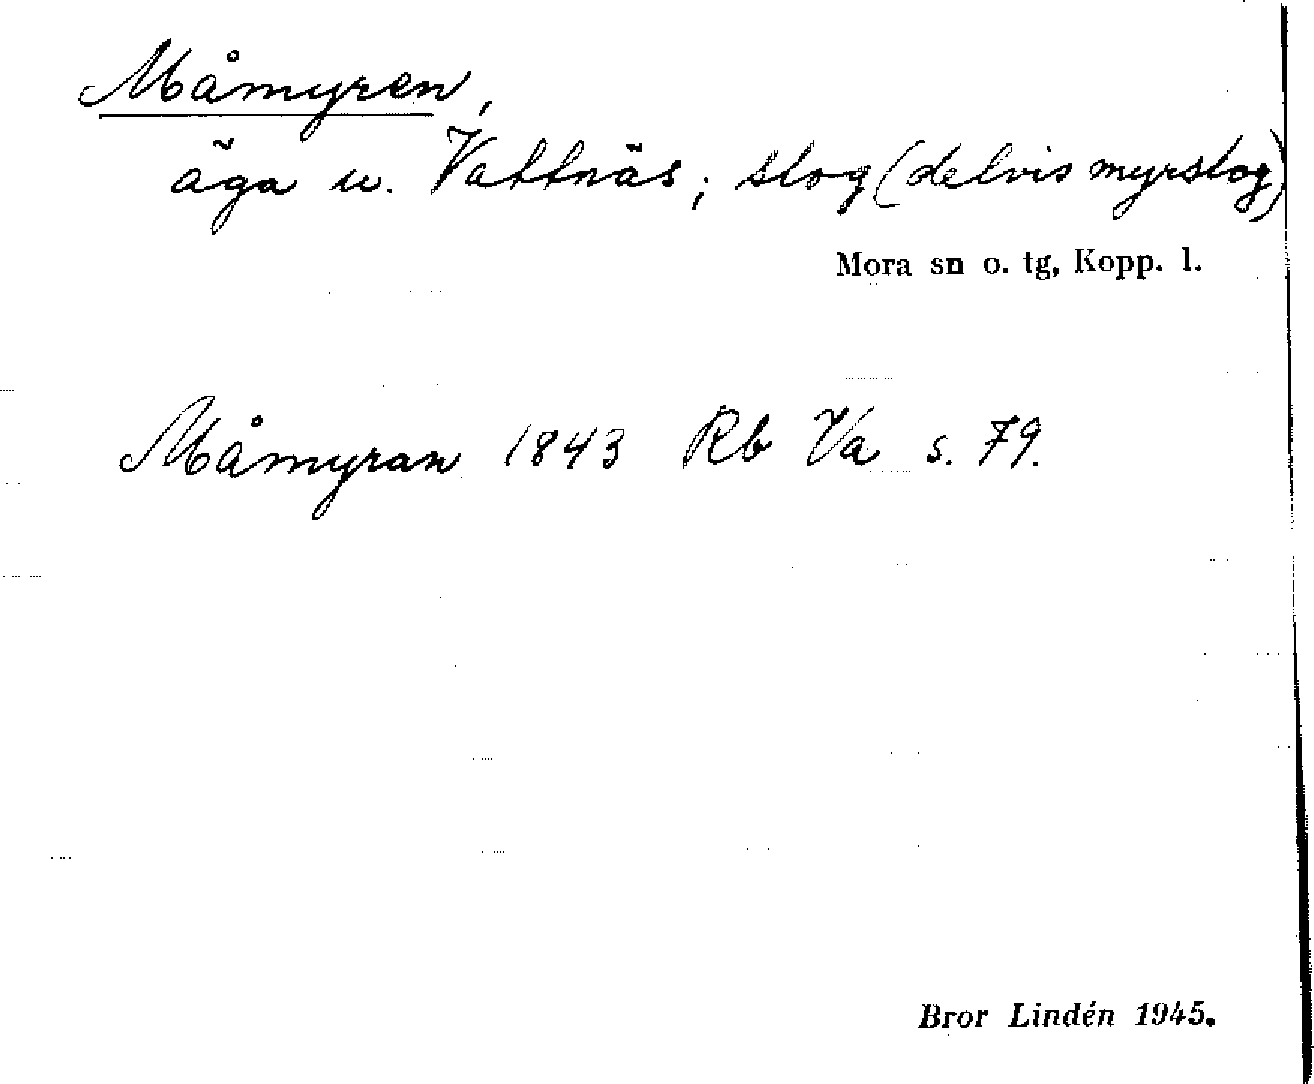 Måmyren,
äga u. Vattnäs; slog (delvis myrslog)
Mora sn o. tg, Kopp. l.
Måmyran 1843 Rb Va s. 79.
Bror Lindén 1945.